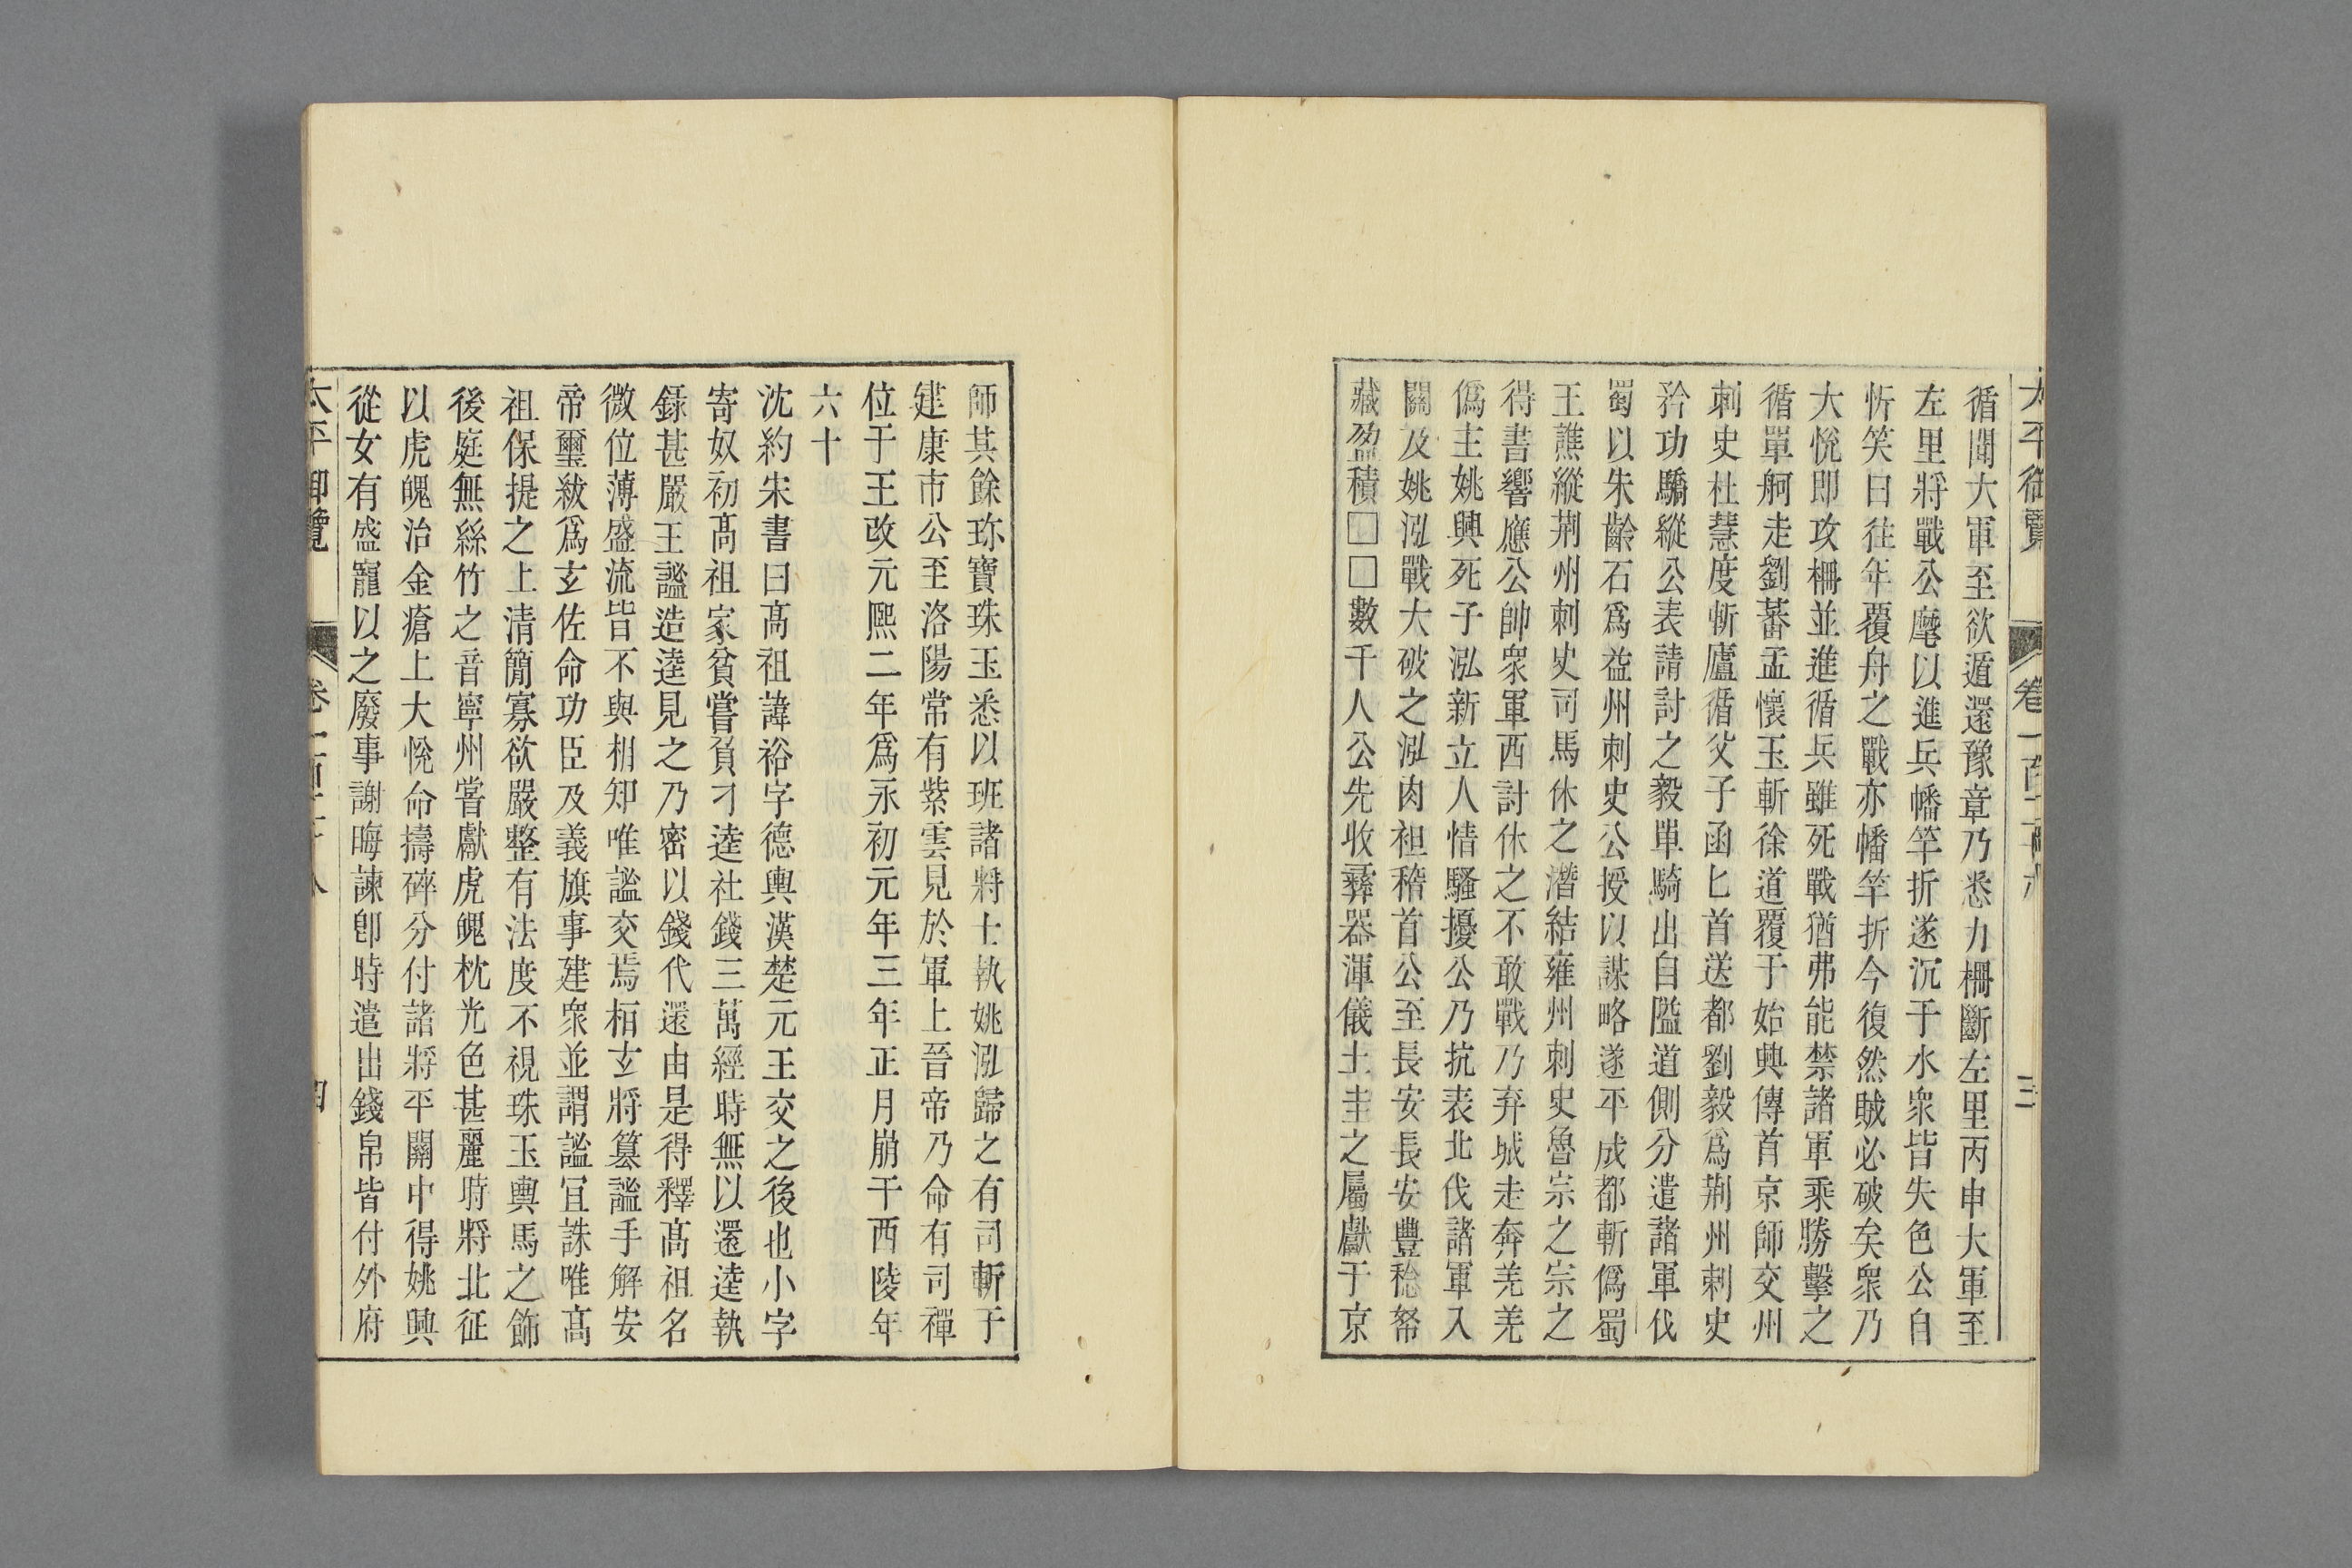 太平御覽 卷一百二十八 三
循聞大軍至欲遁還豫章乃悉力柵斷左里丙申大軍至
左里將戰公麾以進兵幡竿折遂沉于水衆皆失色公自
忻笑曰往年覆舟之戰亦幡竿折今復然賊必破矣衆乃
大悅即攻柵並進循兵雖死戰猶弗能禁諸軍乘勝擊之
循單舸走劉蕃孟懷玉斬徐道覆于始興傳首京師交州
刺史杜慧度斬廬循父子函七首送都劉毅爲荆州刺史
矜功驕縱公表請討之毅單騎出自隘道側分遣諸軍伐
蜀以朱齡石爲益州刺史公授以謀略遂平成都斬僞蜀
王譙縱荆州刺史司馬休之潛結雍州刺史魯宗之宗之
得書響應公帥衆軍西討休之不敢戰乃弃城走奔羌羌
僞主姚興死子泓新立人情騷擾公乃抗表北伐諸軍入
關及姚泓戰大破之泓肉袒稽首公至長安長安豐稔帑
藏盈積□□數千人公先收彝器渾儀土圭之屬獻于京
師其餘珎寶珠玉悉以班諸將士執姚泓歸之有司斬于
建康市公至洛陽常有紫雲見於軍上晉帝乃命有司禪
位于王改元熙二年爲永初元年三年正月崩于西陵年
六十
沈約朱書曰髙祖諱裕字德輿漢楚元王交之後也小字
寄奴初髙祖家貧嘗負刁逵社錢三萬經時無以還逵執
錄甚嚴王謐造逵見之乃密以錢代還由是得釋髙祖名
微位薄盛流皆不與相知唯謐交焉桓玄將篡謐手解安
帝璽紱爲玄佐命功臣及義旗事建衆並謂謐宜誅唯髙
祖保提之上清簡寡欲嚴整有法度不視珠玉輿馬之飾
後庭無絲竹之音寧州嘗獻虎魄枕光色甚麗時將北征
以虎魄治金瘡上大悅命擣碎分付諸將平關中得姚興
從女有盛寵以之廢事謝晦諫卽時遣出錢帛皆付外府
太平御覽 卷一百二十八 四